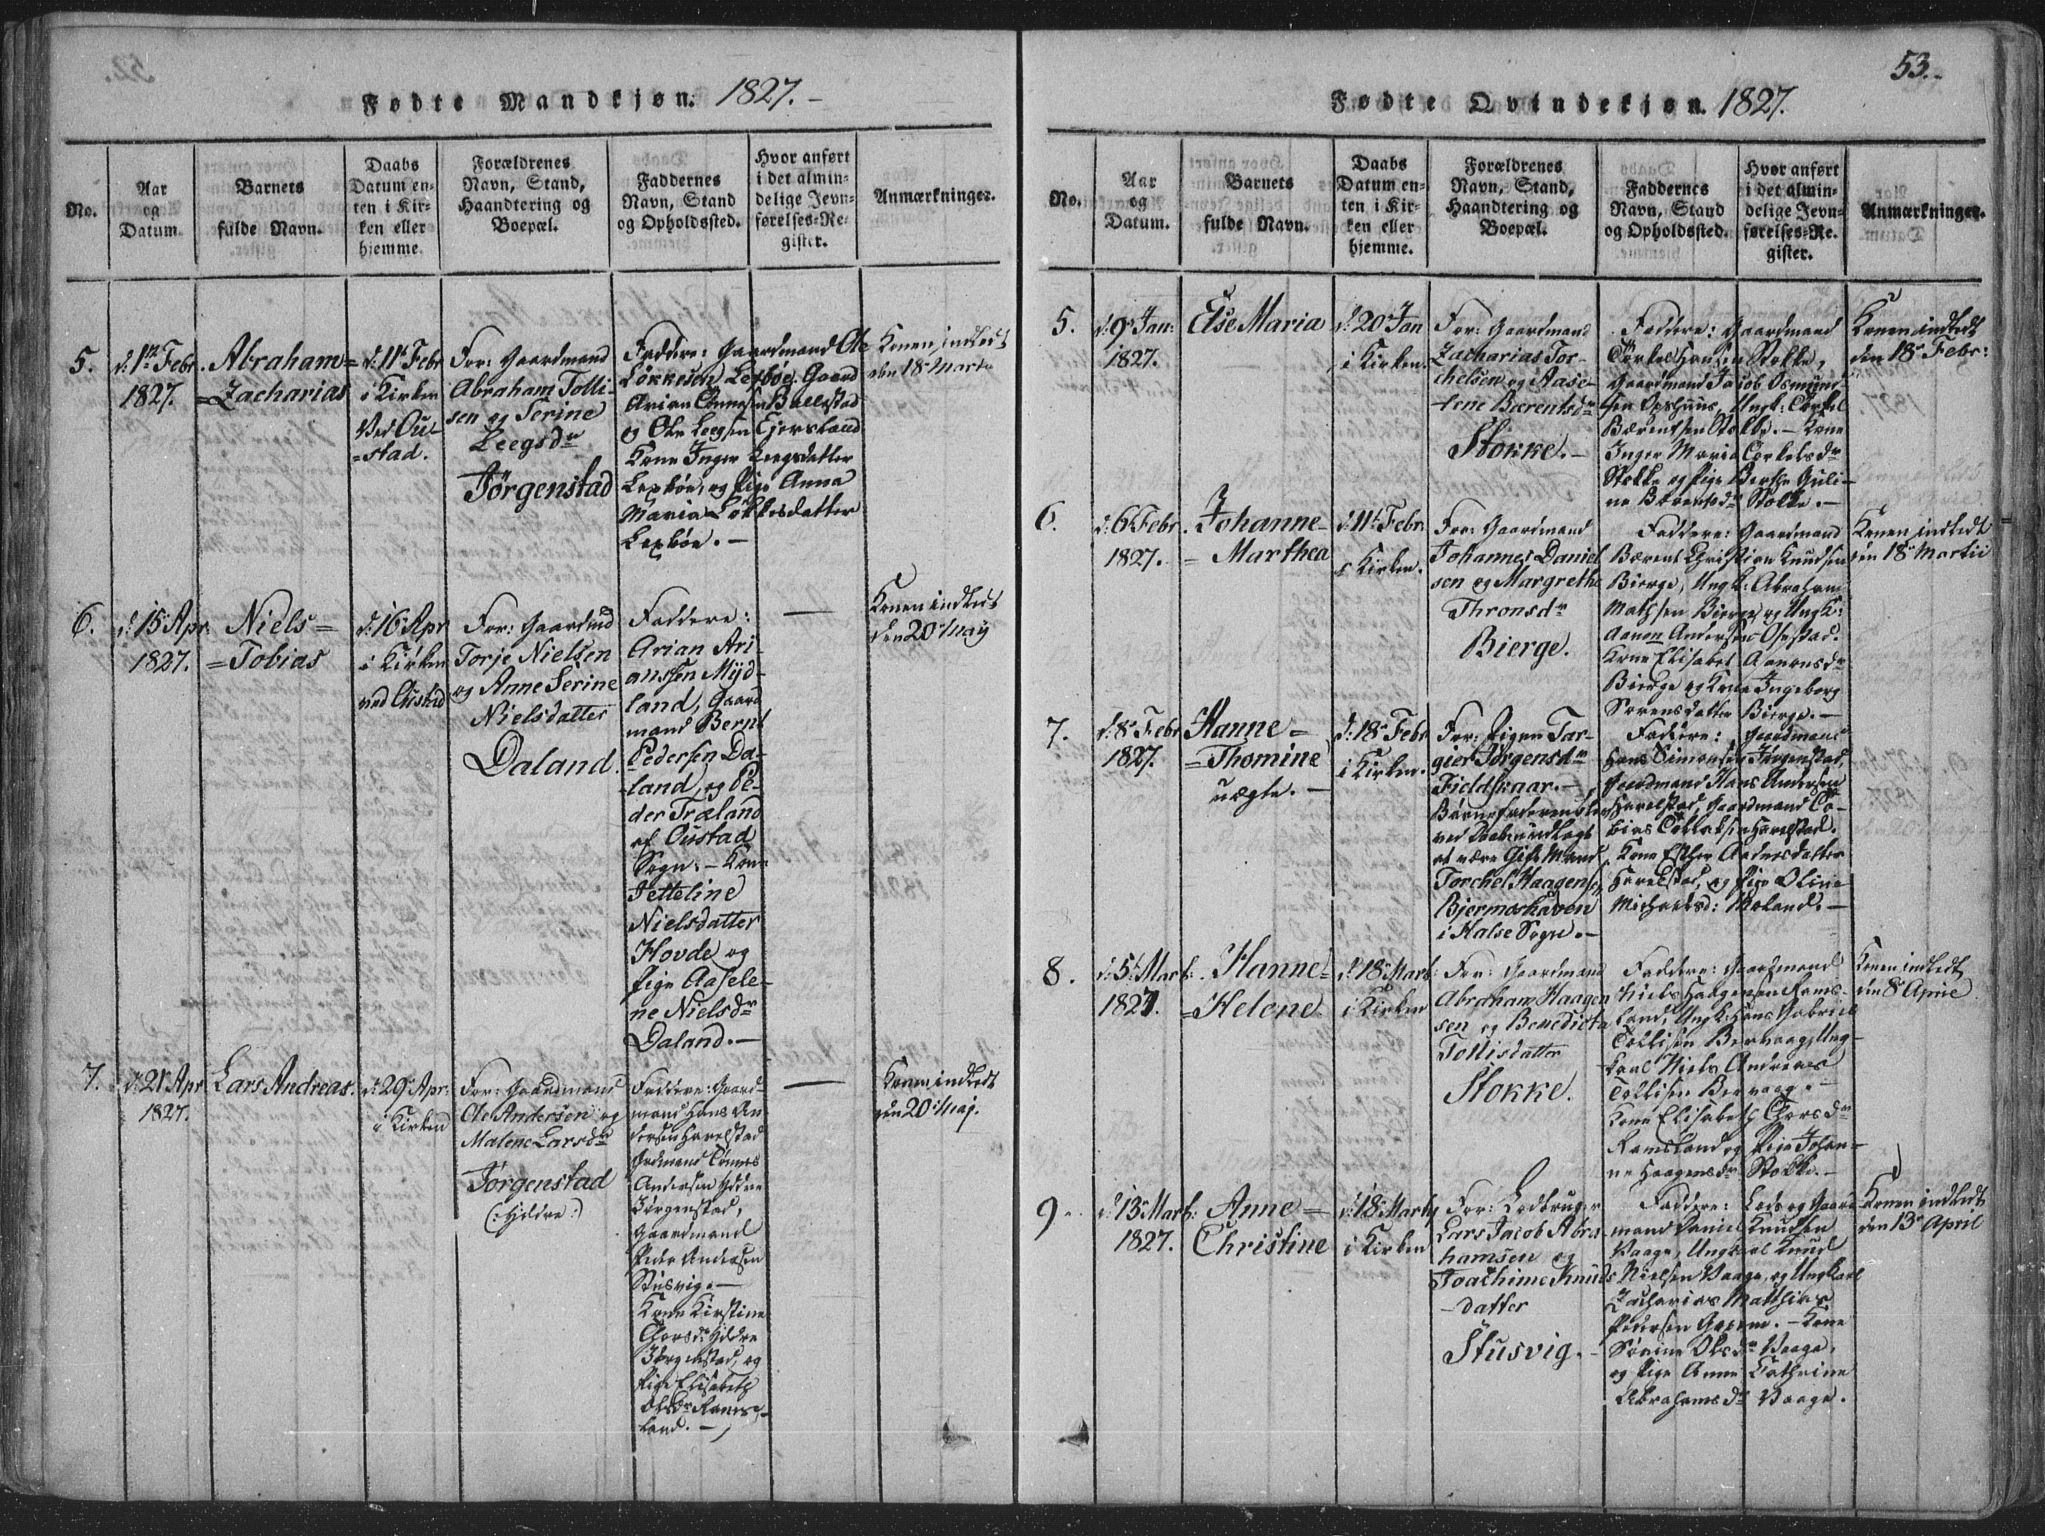 Fødte Mandkjøn. 1827.
No.
Aar
og
Datum.
Barnets
fulde Navn.
Daabs
Datum en-
ten i Kir-
ken eller
hjemme.
Forældrenes
Navn, Stand,
Haandtering og
Boepæl.
Faddernes
Navn, Stand
og Opholdssted.
Hvor anført
i det almin-
delige Jevn-
førelses-Re-
gister.
Anmærkninger.
5.
d: 1te Febr
1827.
Abraham=
=Zacharias
d: 11te Febr
i Kirken
Ved Ou-
=stad.
For: Gaardmand
Abraham Tolli-
sen og Serine
Leegsdr
Jørgenstad
Faddere: Gaardmand Ole
Løkkesen Lexboe, Gaard
Arian Tønnesen Ballestad
og Ole Leegsen Gjersland
Kone Inger Leegsdatter
Lexbøe, og Pige Anna
Maria Løkkesdatter
Lexbøe. —
Konen indledt
den 18 Marti
6.
d: 15 Apr.
1827.
Niels=
=Tobias
d: 16 Apr
i Kirken
ved Oustad
For: Gaardmd
Torje Nielsen
og Anne Serine
Nielsdatter
Daland.
Faddere:
Arian Ari-
anssen Myd-
land, Gaard
mand Bernt
Pedersen Da-
land, og Pe-
der Træland
af Oustad
Sogn. — Kone
Jetteline
Nielsdatter
Hovde og
Pige Aasele-
ne Nielsdr
Daland. —
—
Konen indledt
den 20 May
7.
d: 21 Apr
1827.
Lars Andreas.
d: 29 Apr:
i Kirken
For: Gaardmand
Ole Andersen og
Malene Larsdr
Jørgenstad
(: Hjdre :)
Faddere: Gaard-
mand Hans An-
dersen Harelstad
Grdmand Tønnes
Andersen Yddre
Jørgenstad,
Gaardmand
Peder Andersen
Stusvig. —
Kone Kirstine
Thorsdr Yddre
Jørgenstad, og
Pige Elisabeth
Olsdr Rams-
land. —
—
Konen indledt
den 20 Maj.
53.
Fødte Qvindekjøn. 1827.
No.
Aar
og
Datum.
Barnets
fulde Navn.
Daabs
Datum en-
ten i Kir-
ken eller
hjemme.
Forældrenes
Navn, Stand,
Haandtering og
Boepæl.
Faddernes
Navn, Stand
og Opholdssted.
Hvor anført
i det almin-
delige Jevn-
førelses-Re-
gister.
Anmærkninger.
5.
d: 9 Jan:
1827.
Else Maria
d: 20 Jan
i Kirken.
For: Gaardmand
Zacharias Tor-
chelsen og Aase-
lene Bærentsdr
Stokke. —
Faddere: Gaardmand
Tørkes Hansen Stokke,
Gaardmand Jacob Osmund-
sen Opshuus, Ungk: Torkel
Bærentsen Stokke. — Kone
Inger Maria Torkelsdr
Stokke og Pige Berthe Guli-
ne Bærentsdr Stokke. —
Konen indledt
den 18 Febr:
6.
d: 6 Febr.
1827.
Johanne=
=Marthea
d: 11te Febr.
i Kirken.
For: Gaardmand
Johannes Daniel
sen og Margrethe
Thronsdr
Bierge.
Faddere: Gaardmand
Bærent Christian Knudsen
Bierge, Ungk: Abraham
Mathsen Bierge, og Ungk:
Aanon Andersen Ofstad.
Kone Elisabet Aanonsdr
Bierge og Kone Ingeborg
Sørensdatter Bierge. —
Konen indledt
den 18 Martii
7.
d: 8 Febr
1827.
Hanne=
=Thomine
uægte. —
d: 18 Febr
i Kirken.
For: Pigen Tar-
gier Jørgensdr
Fieldskaar. —
Barnefaderen blev
ved Daaben udlagt
at være Gift Mand
Torchel Haagens:
Bjermoshaven
i Halse Sogn. —
Faddere: Gaardmand
Hans Simonsen Jørgenstad,
Gaardmand Hans Andersen
Harelstad, Gaardmand To-
bias Tolleksen Harelstad.
Kone Esther Andersdatter
Harelstad, og Pige Oline
Michaelsd: Møland. —
8.
d: 5 Mart:
1827.
Hanne=
=Helene
d: 18 Mart:
i Kirken
For: Gaardmand
Abraham Haagen
sen og Benedicta
Tollisdatter
Stokke.
Faddere: Gaardmand
Niels Haagensen Rams-
land, Ungk: Hans Gabriel
Tollisen Bervaag, Ung-
karl Niels Andreas
Tollisen Bervaag. —
Kone Elisabeth Thorsdr
Ramsland og Pige Johan-
ne Haagensdr Stokke. —
Konen indledt
den 8 Aprie
9.
d: 13 Mart:
1827.
Anne=
Christine
d: 18 Marty
i Kirken
For: Lodbruger
Lars Jacob Abra-
hamsen og
Joachime Knuds
-datter
Stusvig. —
Faddere: Lods og Gaard
mand Daniel Knudsen
Vaage, Ungkarl Knud
Nielsen Vaage, og Ungkarl
Zacharias Matthias
Pedersen Gaxene. — Kone
Sørine Olsdr Vaage,
og Pige Anne Cathrine
Abrahamsdr Vaage.
Konen indledt
den 13 April